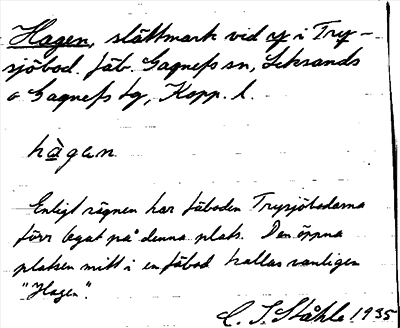 Hagen, slåttmark vid y i Try-
sjöbod. fäb. Gagnefs sn, Leksands
o Gagnefs tg, Kopp. l.
hàgan
Enligt sägnen har fäboden Trysjöbodarna
förr legat på denna plats. Den öppna
platsen mitt i en fäbod kallas vanligen
"Hagen".
C. I. Ståhle 1935